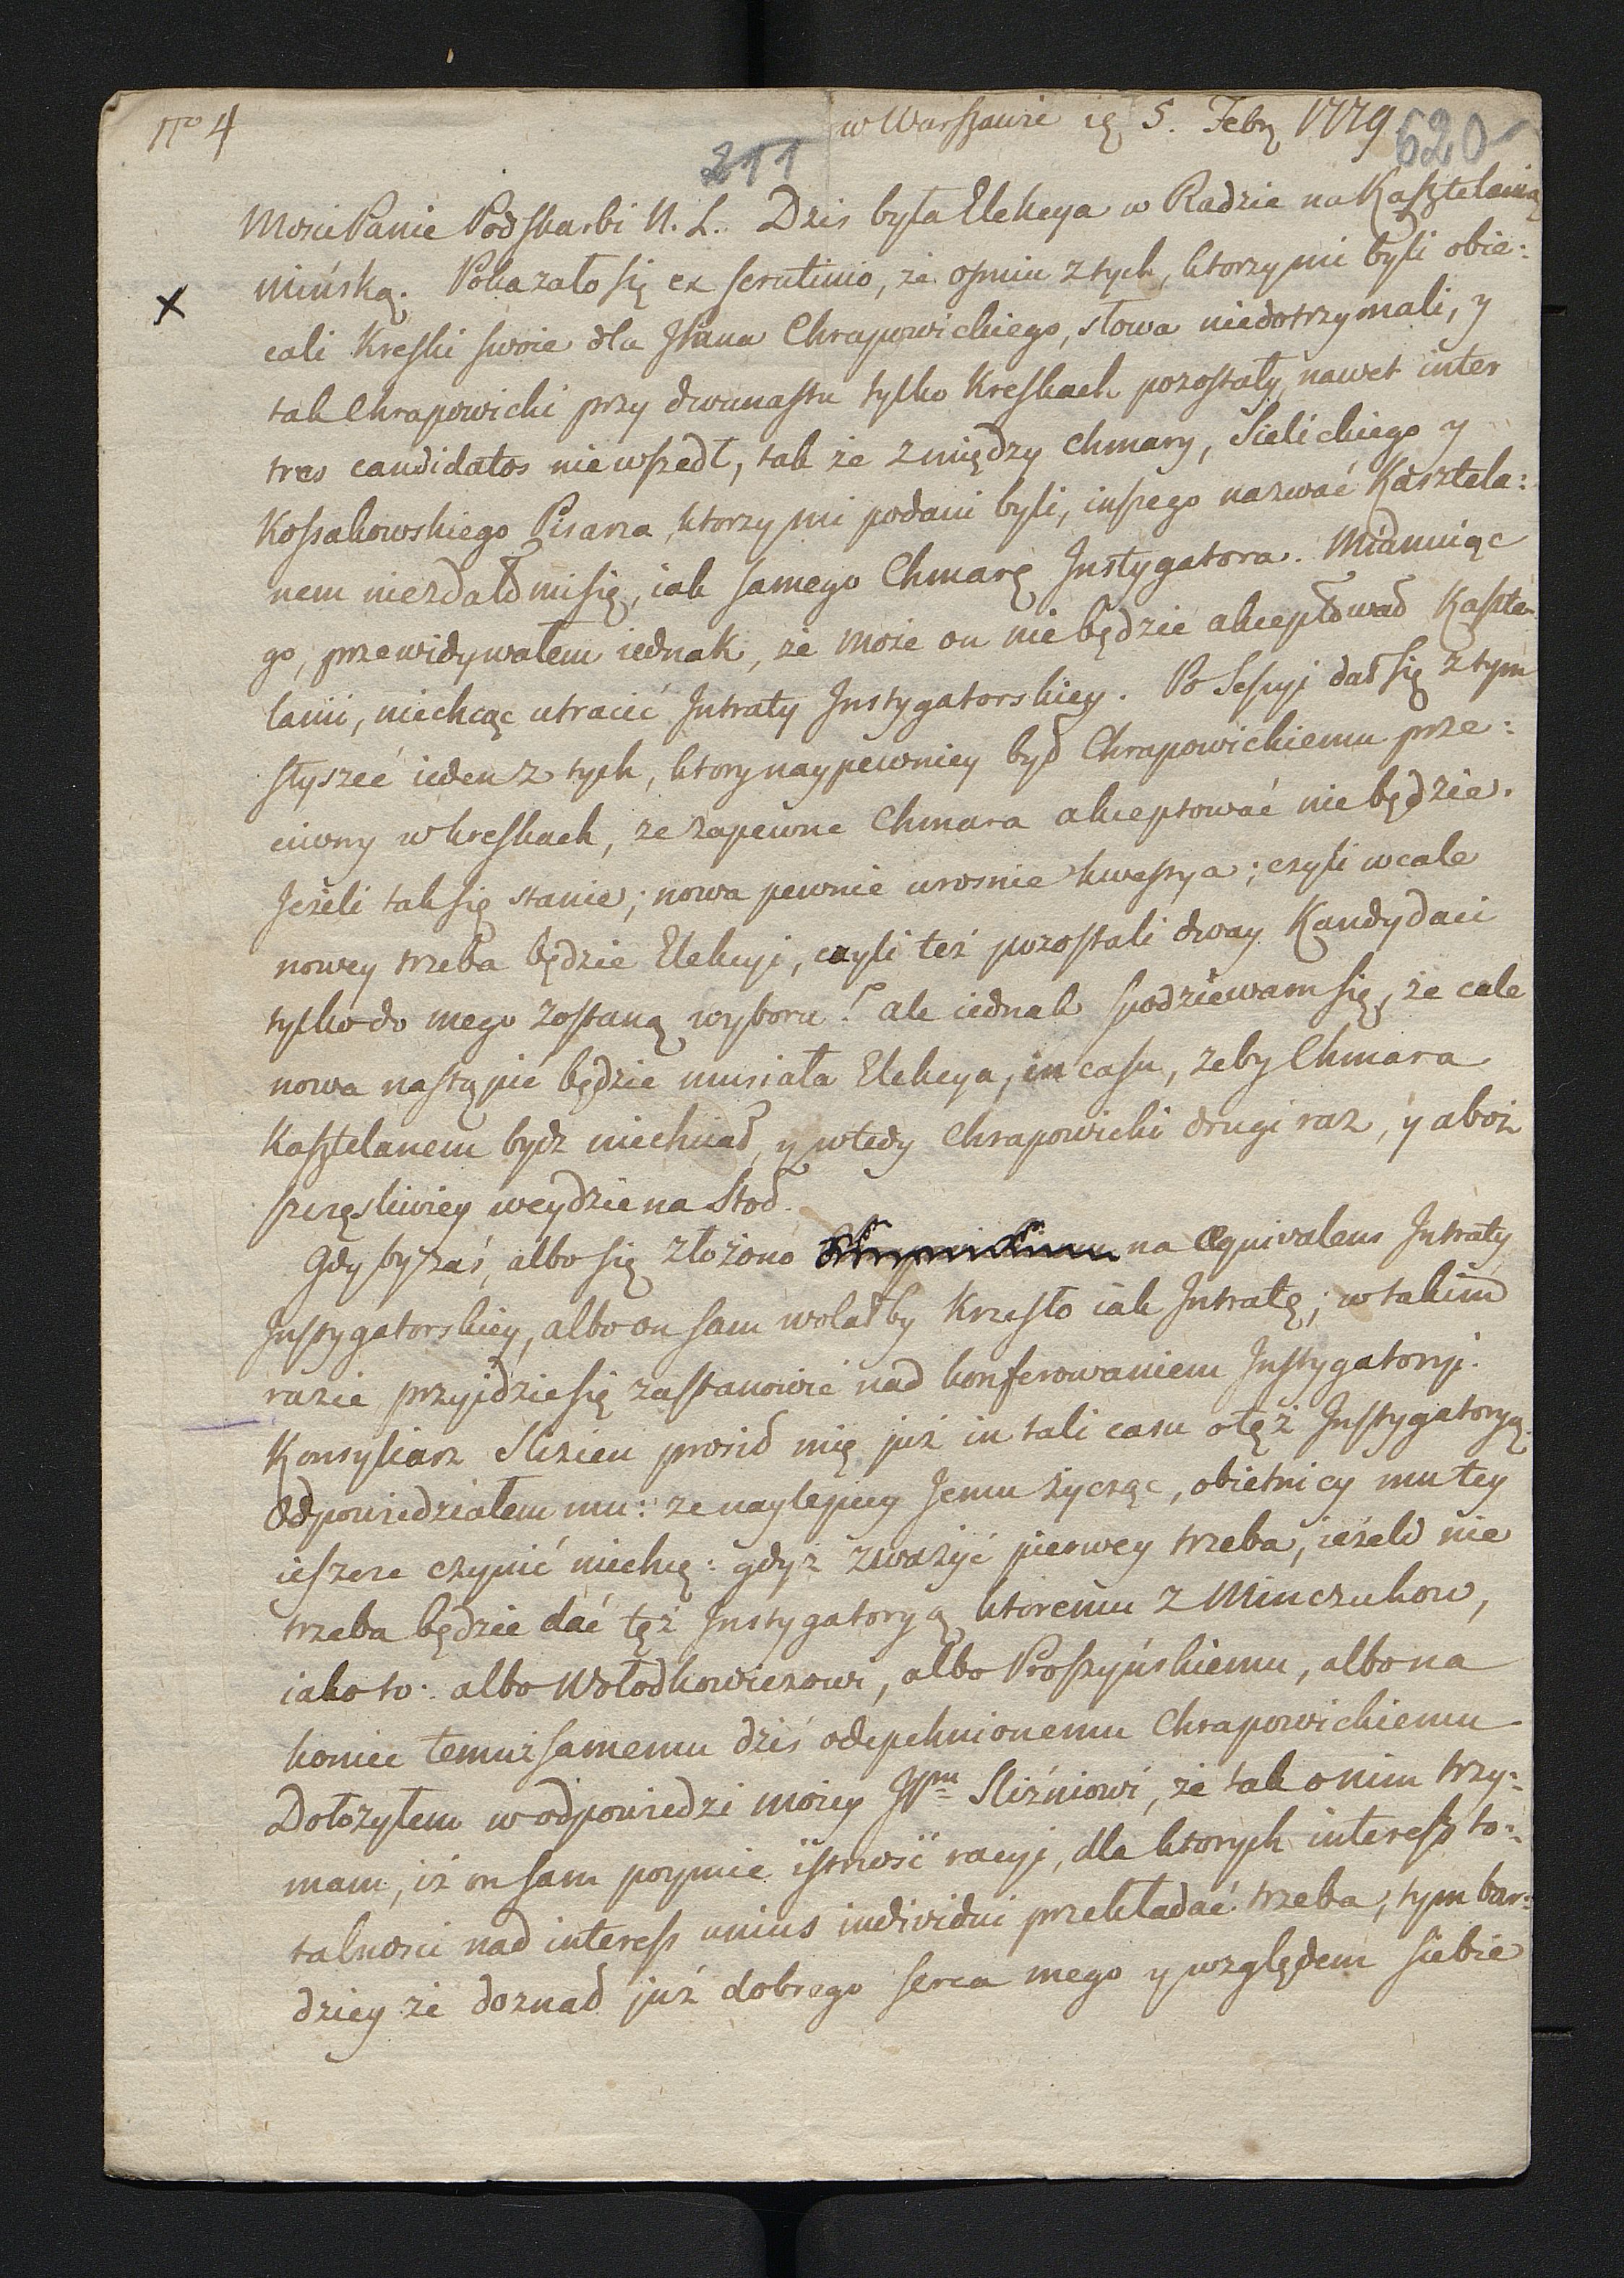 Nro 4
w Warszawie ię 5. Febr 1779
620
211
Mości Panie Podskarbi N. L. Dzis była Elekcya w Radzie na Kasztelanią
mińską. Pokazało się ex scrutinio, że ośmiu z tych, ktorzy mi byli obie:
cali Kreski swoie dla JPana Chrapowickiego, słowa niedotrzymali, y
tak Chrapowicki przy dwunastu tylko Kreskach pozostały, nawet inter
tres candidatos nie wszedł, tak że z między Chmary, Sielickiego y
Kossakowskiego Pisarza, ktorzy mi podani byli, inszego nazwać Kasztela:
nem niezdało mi się, iak samego Chmarę Instygatora. Mianuiąc
go, przewidywałem iednak, że może on nie będzie akceptował Kaszte-
lanii, niechcąc utracić Intraty Instygatorskiey. Po Sessyi dał się z tym
słyszeć ieden z tych, ktory naypewniey był Chrapowickiemu prze:
ciwny w kreskach, że zapewne Chmara akceptować nie będzie.
Jeżeli tak się stanie; nowa pewnie urosnie kwestya; czyli wcale
nowey trzeba będzie Elekcyi, czyli też pozostali dway Kandydaci
tylko do mego zostaną wyboru? ale iednak spodziewam się, że cale
nowa nastąpić będzie musiała Elekcya, in casu, żeby Chmara
Kasztelanem bydz niechciał, y wtedy Chrapowicki drugi raz, y aboż
szczęśliwiey weydzie na Stoł.
Gdyby zaś, albo się złożono na Æquivalens Intraty
Instygatorskiey, albo on sam wolałby Krzesło iak Intratę; w takim
razie przyidzie się zastanowić nad konferowaniem Instygatoryi.
Konsyliarz Slizien prosił mię już in tali casu o tęż Instygatoryą.
Odpowiedziałem mu: że naylepiey Jemu życząc, obietnicy mu tey
ieszcze czynić niechcę: gdyż zważyć pierwey trzeba, ieżeli nie
trzeba będzie dać tęż Instygatoryą ktoremu z Minczukow,
iako to: albo Wołodkowiczowi, albo Proszyńskiemu, albo na
koniec temuż samemu dziś odepchnionemu Chrapowickiemu
Dołożyłem w odpowiedzi moiey JPnu Sliźniowi, że tak o nim trzy:
mam, iż on sam poymie istność racyi, dla ktorych interess to:
talności nad interess unius individui przekładać trzeba, tym bar:
dziey że doznał już dobrego serca mego y względem siebie